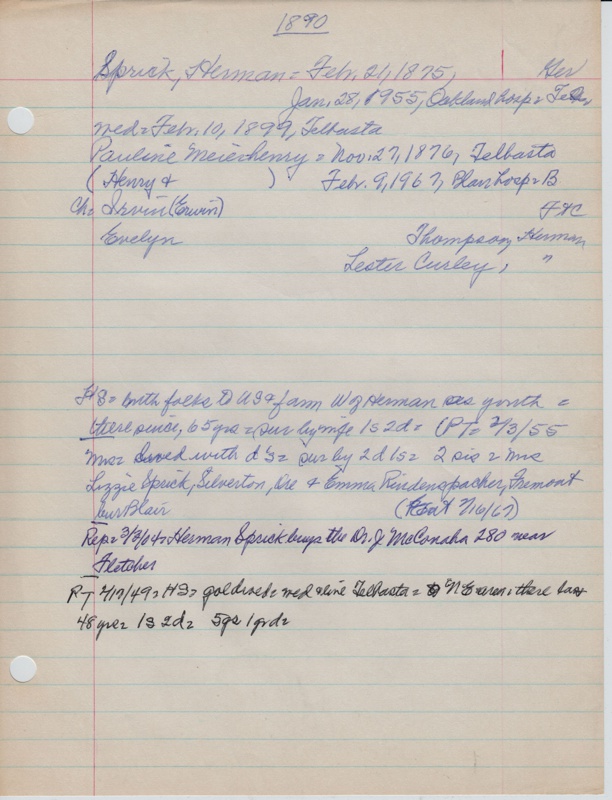 1890
Sprick, Herman = Feb. 21, 1875, Ger
Jan. 28, 1955, Oakland hosp =
med = Feb. 10, 1899, Telbasta
Pauline Meierhenry = Nov. 27, 1876, Telbasta
(Henry & ) Feb. 9, 1967, Blair hosp = B
Ch = Irvin (Erwin) F & C
Evelyn Thompson, Herman
Lester Curley, "
HS = with folks to US & farm W of Herman as youth =
there since, 65 yrs = sur by wife 1s 2d = (PT = 2/3/55
Mrs = lived with d's = sur by 2d 1s = 2 sis = Mrs
Lizzie Sprick, Silverton, Ore & Emma Rindenspacher, Fremont
bur Blair (Ent 2/16/67)
Rep = 3/3/04 = Herman Sprick buys the Dr. J. McConaha 280 near
Fletcher
PT 2/17/49 = HS = gold wed = med & live Telbasta = to NE area & there
48 yrs = 1s 2d = 5gs 1grd =